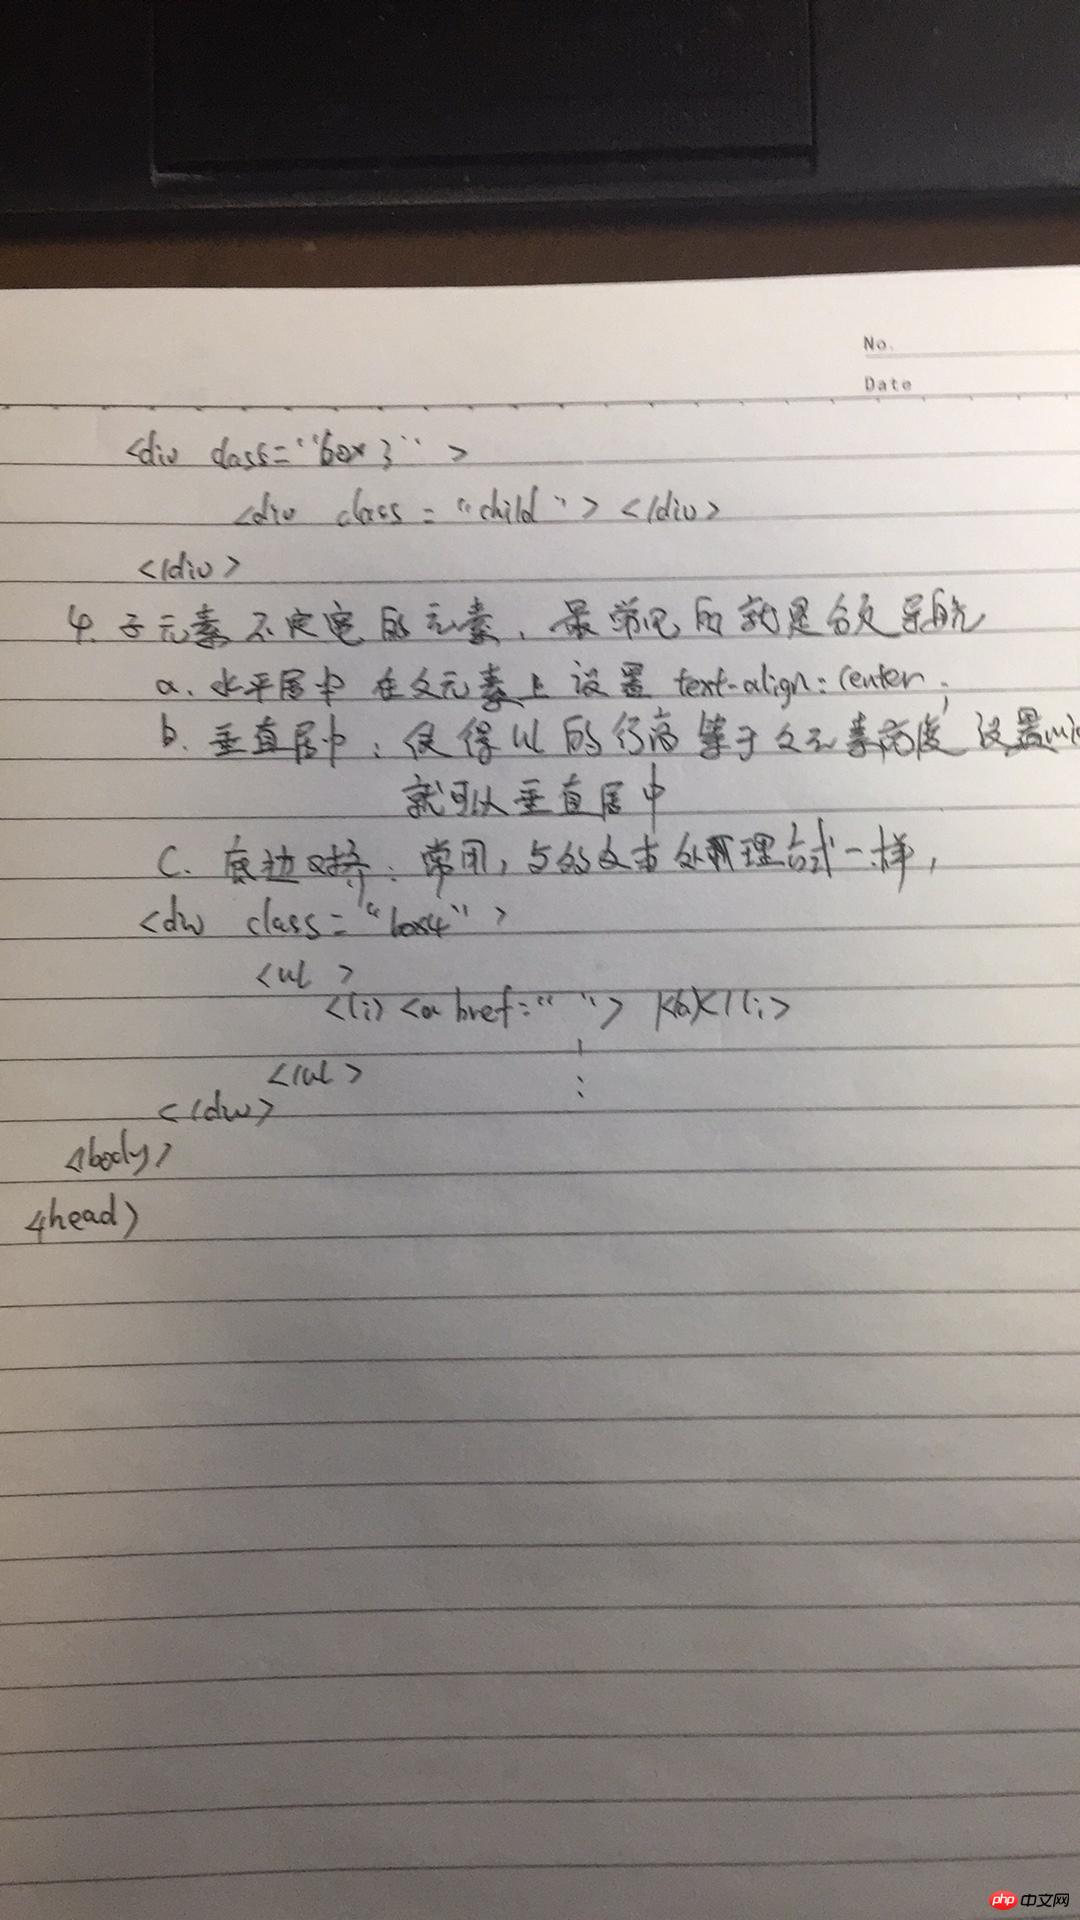 No.
Date
<div class="box3">
<div class="child"></div>
</div>
4. 子元素不定宽的元素,最常见的就是分页导航
a. 水平居中 在父元素上设置 text-align:center;
b. 垂直居中:使得ul的行高等于父元素高度 设置
就可以垂直居中
c. 底边对齐:常用,与多行文本处理方式一样,
<div class="box4">
<ul>
<li><a href=" "> 1</a></li>
⋮
</ul>
</div>
</body>
</head>
php 中文网